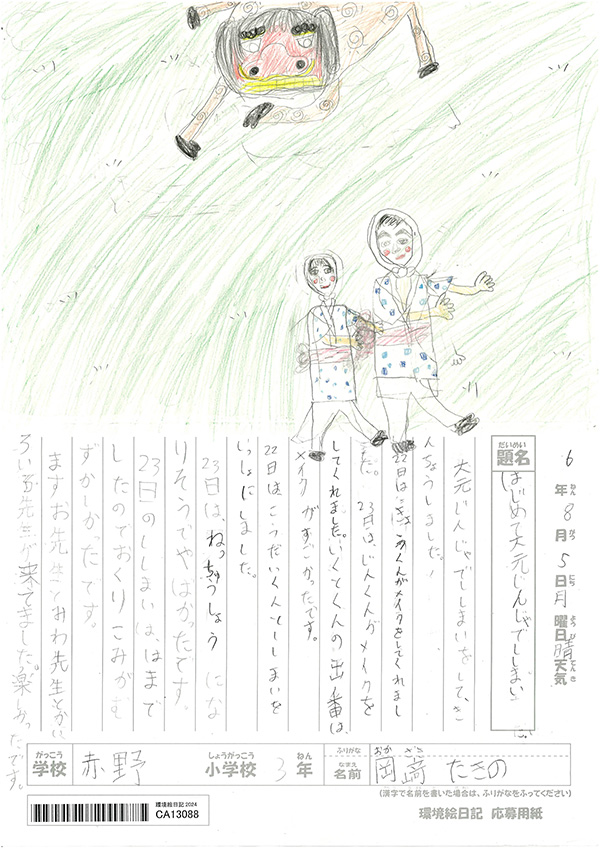 6年8月5日月曜日晴天気
ねん がつ にち ようび てんき
だいめい
題名
はじめて大元じんじゃでししまい
大元じんじゃでししまいをして、き
んちょうしました。
22日は、くんがメイクをしてくれまし
た。23日は、じんくんがメイクを
してくれました。いくとくんの出番は
メイクがすごかったです。
22日は、こうだいくんとししまいを
いっしょにしました。
23日は、ねっちゅうしょうにな
りそうでやばかったです。
23日のししまいは、はまで
したのでおくりこみがむ
ずかしかったです。
ますお先生とおわ先生とか、い
ろい先生が来てきました。楽しかったです。
がっこう しょうがっこう ねん
学校 赤野 小学校 3年
ふりがな おか ざき
なまえ
名前 岡﨑 たきの
(漢字で名前を書いた場合は、ふりがなをふってください)
環境絵日記2024
CA13088
環境絵日記 応募用紙